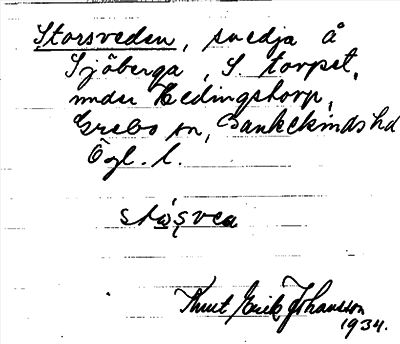 Storsveden, svedja å
Sjöberga, S torpet,
under Hedingstorp,
Grebo sn, Bankekinds hd
Ögl. l.
stosvea
Knut Erik Johansson
1934.